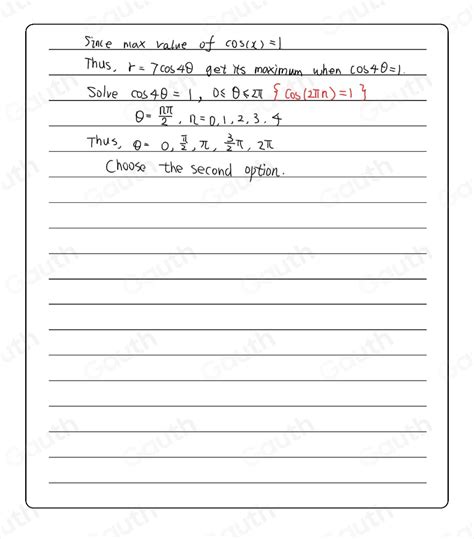 Since max value of cos(x) = 1
Thus, r = 7cos4θ get its maximum when cos4θ=1.
Solve cos4θ = 1, 0≤θ≤2π {cos(2πn)=1}
θ = nπ/2, n=0,1,2,3,4
Thus, θ= 0, π/2, π, 3/2π, 2π
Choose the second option.
Gauth